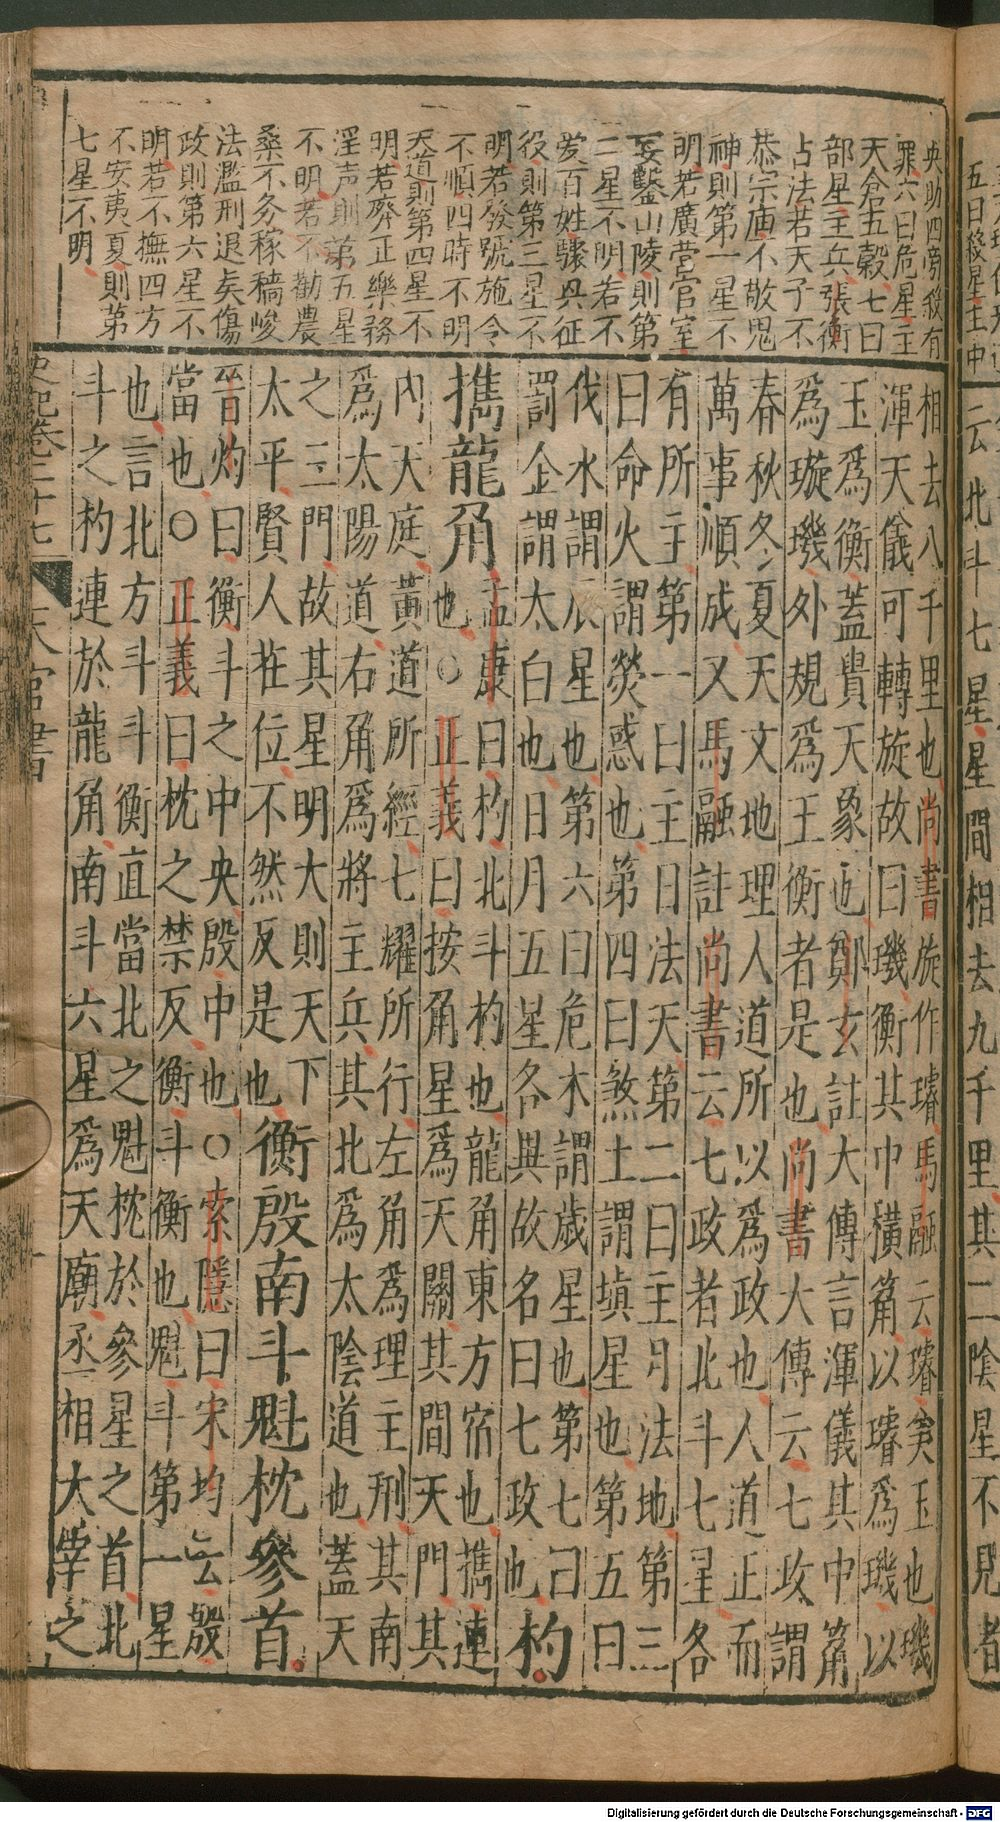 五曰殺星主中
云北斗七星星間相去九千里其二陰星不見者
央助四旁殺有
罪六曰危星主
天倉五穀七曰
部星主兵張衡
占法若天子不
恭宗庙不敬鬼
神則第一星不
明若廣營宫室
妄鑿山陵則第
二星不明若不
爱百姓驟具征
役則第三星不
明若發號施令
不順四時不明
天道則第四星不
明若廢正樂務
淫声則第五星
不明若不勸農
桑不务稼穡峻
法濫刑退矣傷
政則第六星不
明若不撫四方
不安夷夏則第
七星不明
相去八千里也尚書旋作璿馬融云璿美玉也璣
渾天儀可轉旋故曰璣衡其中橫筩以璿爲璣以
玉爲衡蓋貴天象也鄭玄註大傳言渾儀其中筩
爲璇璣外規爲王衡者是也尚書大傳云七政謂
春秋冬夏天文地理人道所以爲政也人道正而
萬事順成又馬融註尚書云七政者北斗七星各
有所主第一曰主日法天第二曰主月法地第三
曰命火謂熒惑也第四曰煞土謂填星也第五曰
伐水謂辰星也第六曰危木謂歲星也第七曰
罰金謂太白也日月五星各異故名曰七政也
杓
攜龍角
孟康曰杓北斗杓也龍角東方宿也攜連
也○正義曰按角星爲天關其間天門其
內天庭黃道所經七耀所行左角爲理主刑其南
爲太陽道右角爲將主兵其北爲太陰道也蓋天
之三門故其星明大則天下
太平賢人在位不然反是也
衡殷南斗魁枕參首
晉灼曰衡斗之中央殷中也○索隱曰宋均云殷
當也○正義曰枕之禁反衡斗衡也魁斗第一星
也言北方斗斗衡直當北之魁枕於參星之首北
斗之杓連於龍角南斗六星爲天廟丞相大宰之
史記卷二十七 天官書
Digitalisierung gefördert durch die Deutsche Forschungsgemeinschaft - DFG